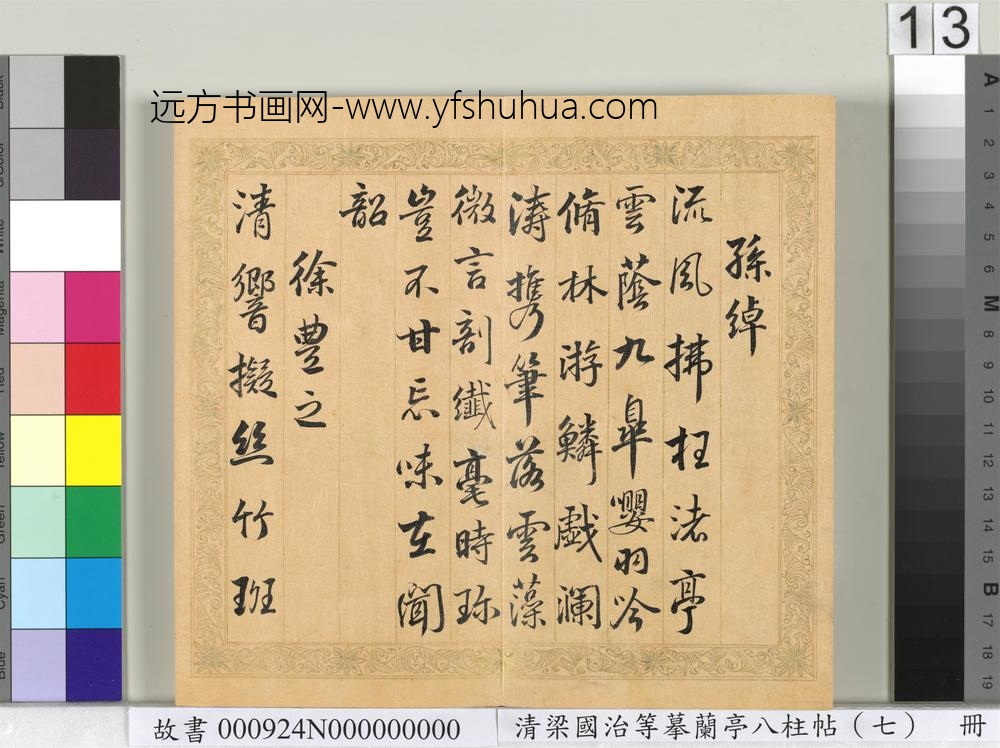 13
远方书画网-www.yfshuhua.com
孫綽
流風拂枉渚亭
雲蔭九皋嚶羽吟
脩林游鱗戲瀾
濤携筆落雲藻
微言剖纖毫時珍
豈不甘忘味在聞
韶
徐豐之
清響擬絲竹班
故書 000924N000000000
清梁國治等摹蘭亭八柱帖（七） 冊
White
Magenta
Red
Yellow
Green
Cyan
Blue
A
1
2
3
4
5
6
M
8
9
10
11
12
13
14
15
B
17
18
19